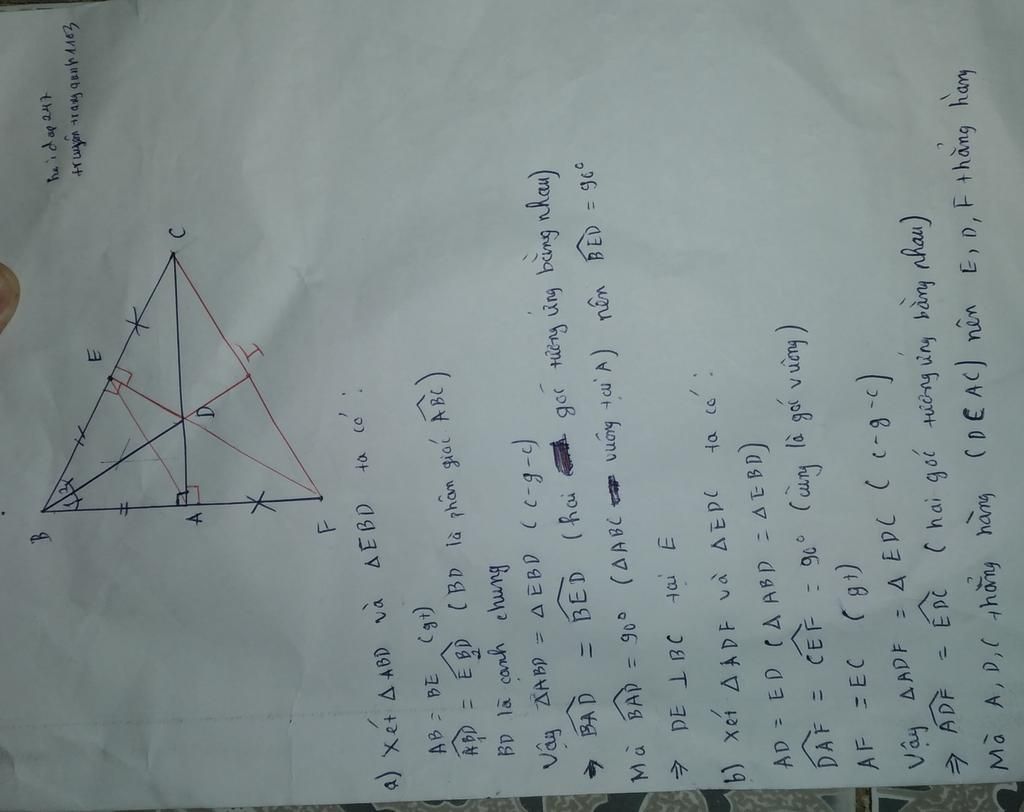 hoidap247
truyentrangauth1103
B
E
C
D
A
I
F
1 2
a) Xét Δ ABD và Δ EBD ta có:
AB = BE (gt)
ABD = EBD (BD là phân giác ABC)
BD là cạnh chung
Vậy ΔABD = ΔEBD (c-g-c)
⇒ BAD = BED (hai góc tương ứng bằng nhau)
Mà BAD = 90° (ΔABC vuông tại A) nên BED = 90°
⇒ DE ⊥ BC tại E
b) Xét Δ ADF và Δ EDC ta có:
AD = ED (Δ ABD = Δ EBD)
DAF = CEF = 90° (cùng là góc vuông)
AF = EC (gt)
Vậy Δ ADF = Δ EDC (c-g-c)
⇒ ADF = EDC (hai góc tương ứng bằng nhau)
Mà A, D, C thẳng hàng (D ∈ AC) nên E, D, F thẳng hàng